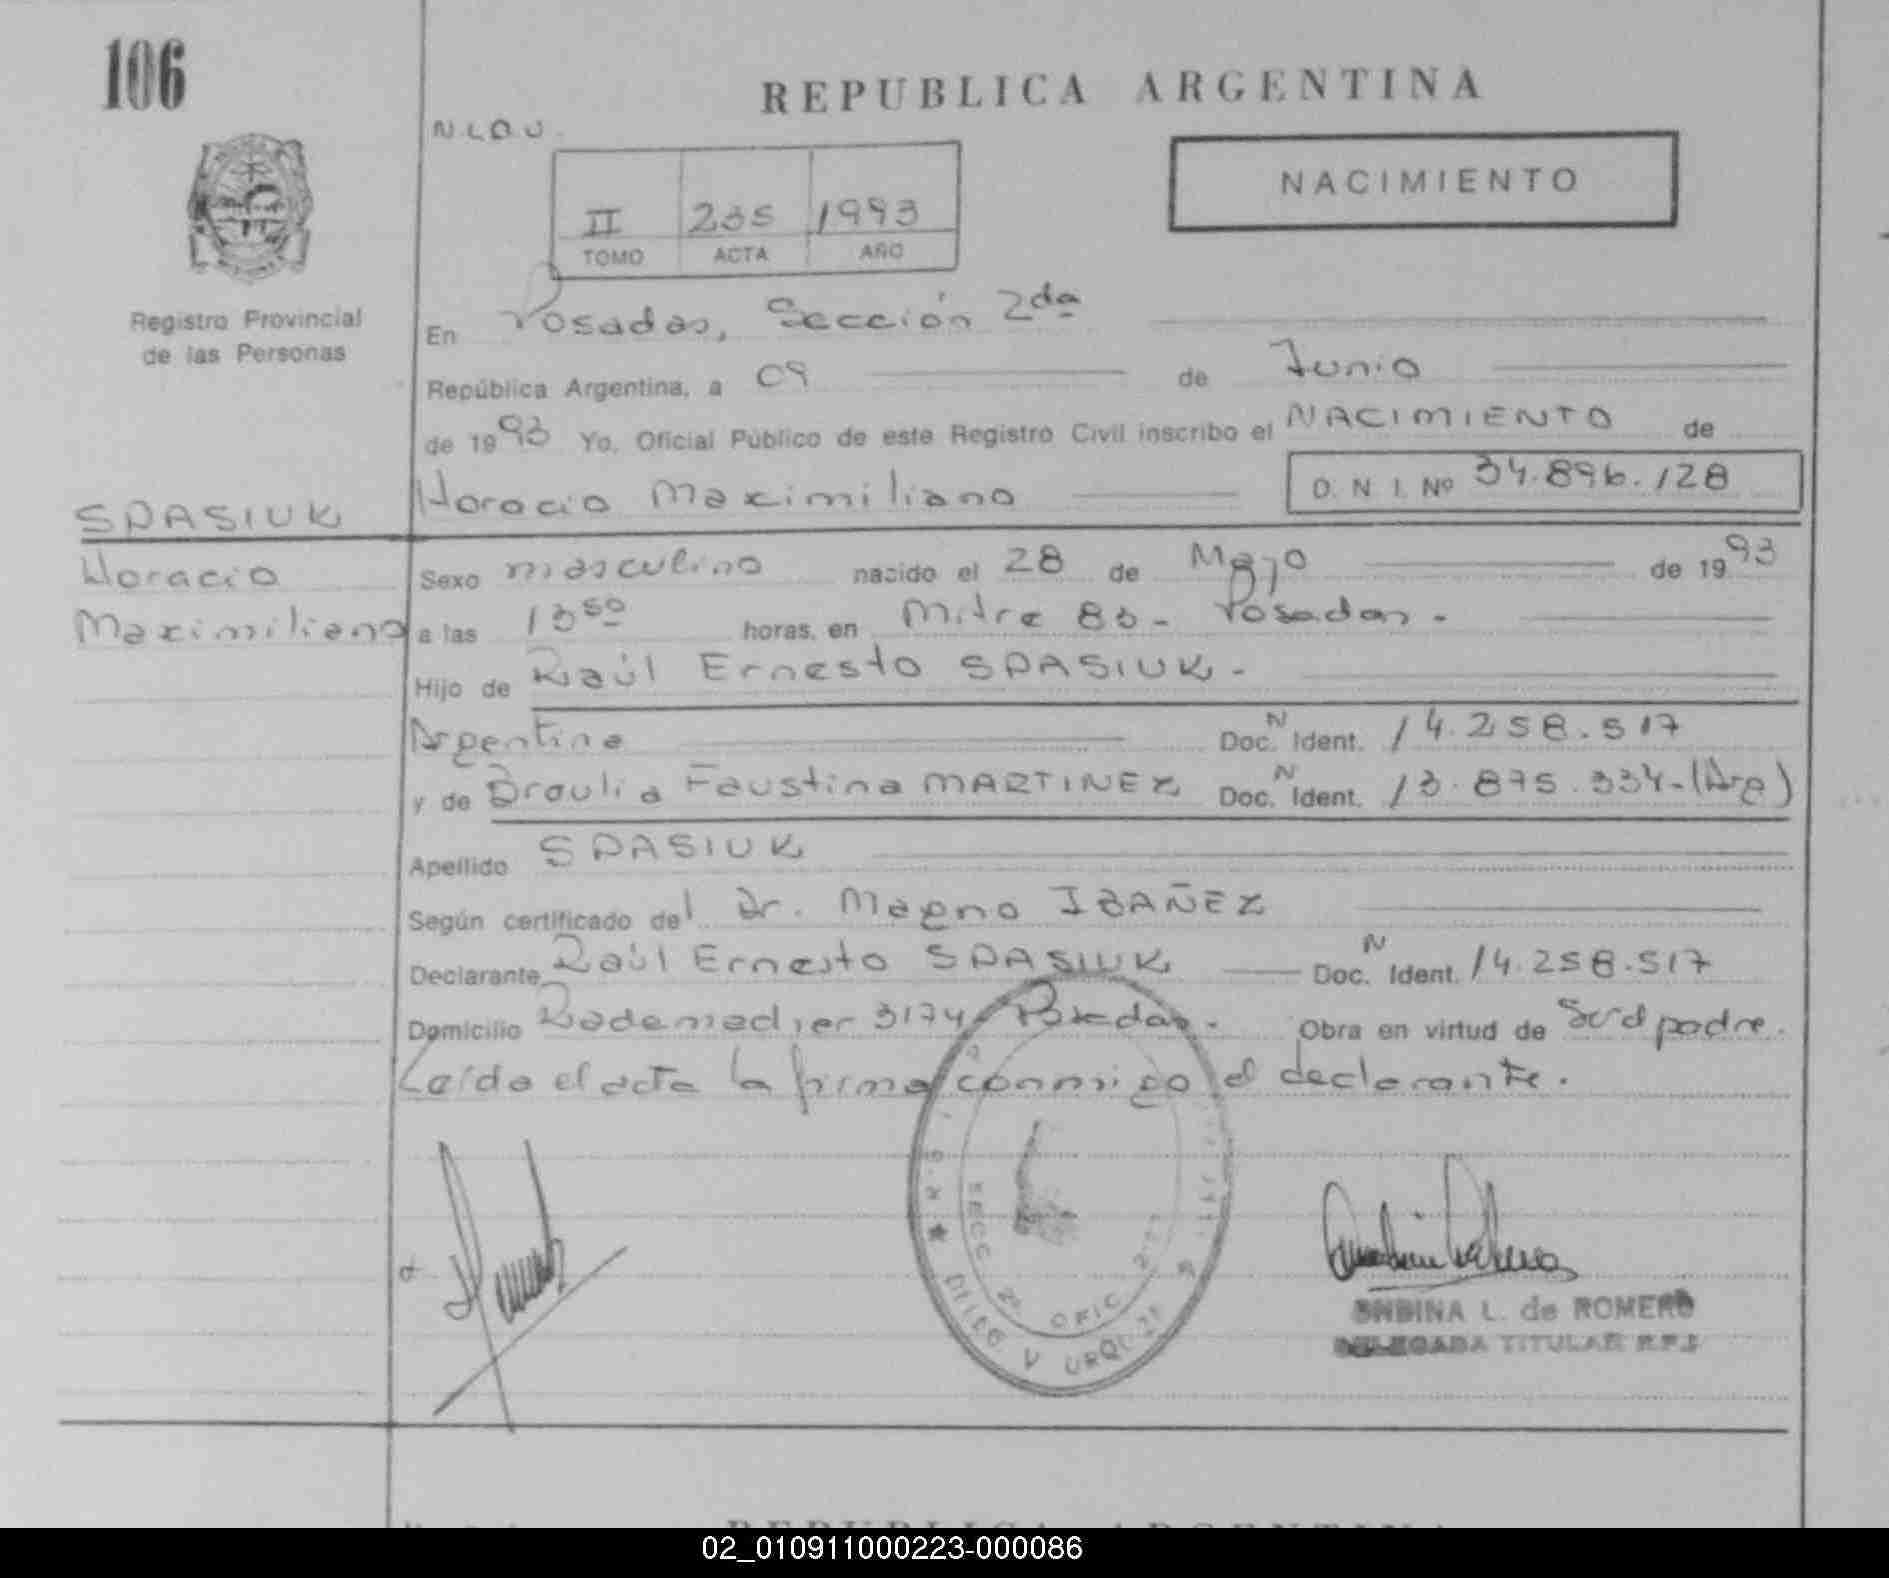 106
REPUBLICA ARGENTINA
N.L.O.U.
NACIMIENTO
II 235 1993
TOMO ACTA AÑO
Registro Provincial
de las Personas
En Posadas, Sección 2da
República Argentina, a 09 de Junio
de 1993 Yo, Oficial Público de este Registro Civil inscribo el NACIMIENTO de
Horacio Maximiliano D. N. I. Nº 34.896.128
SPASIUK
Horacio
Maximiliano
Sexo masculino nacido el 28 de Mayo de 1993
a las 13 50 horas, en Mitre 83 - Posadas.
Hijo de Raúl Ernesto SPASIUK.
Argentina Doc. N Ident. 14.258.517
y de Braulia Faustina MARTINEZ Doc. N Ident. 13.875.334-(Arg)
Apellido SPASIUK
Según certificado del Dr. Magno IBAÑEZ
Declarante Raúl Ernesto SPASIUK Doc. N Ident. 14.258.517
Domicilio Rademacher 3174 Posadas. Obra en virtud de Ser el padre.
Leída el acta la firma conmigo el declarante.
SECC 2º OFIC
URQUIZA
L. de ROMERO
DELEGADA TITULAR R.P.
REPUBLICA ARGENTINA
02_010911000223-000086